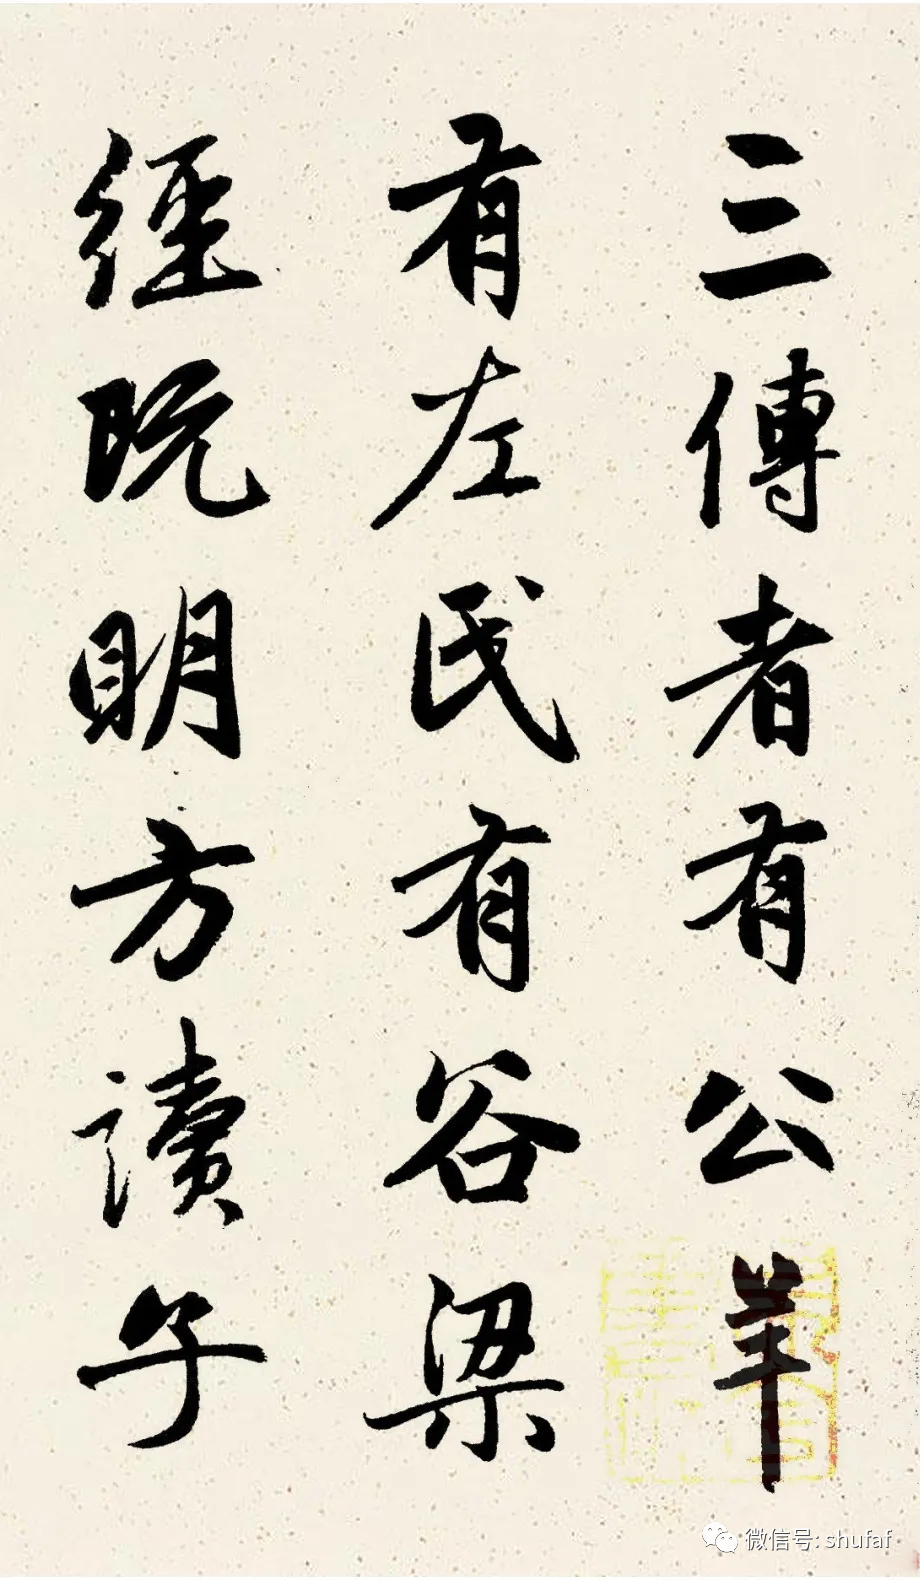 三傳者有公羊
有左氏有谷梁
經既明方讀子
微信号: shufaf